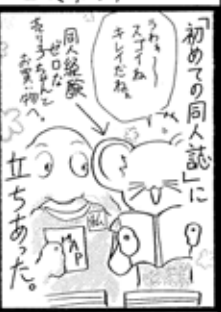 「初めての同人誌」に
立ちあった。
うわぁ〜〜
スゴイね
キレイだね。
同人経験
ゼロな
売り子ちゃんと
お買い物へ。